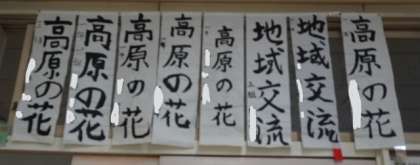 高原の花
高原の花
高原の花
高原の花
高原の花
地域交流
地域交流
高原の花